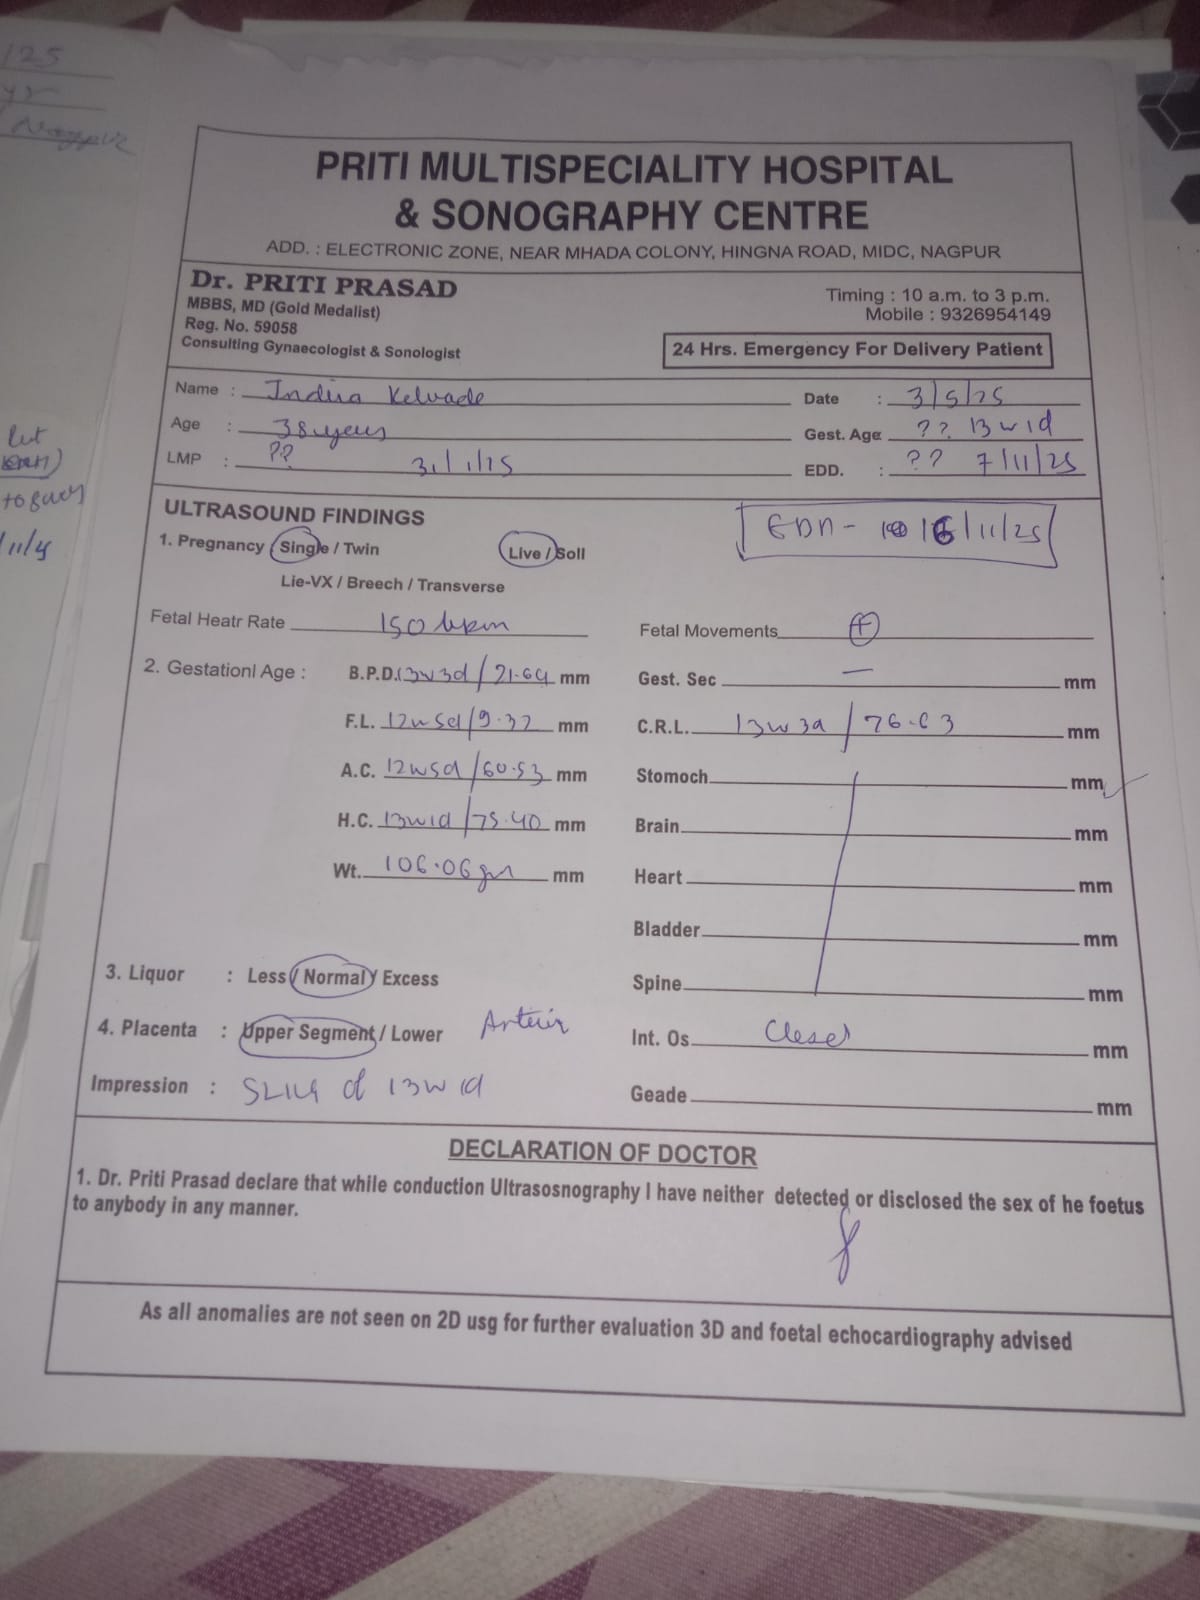 125
PRITI MULTISPECIALITY HOSPITAL
& SONOGRAPHY CENTRE
ADD. : ELECTRONIC ZONE, NEAR MHADA COLONY, HINGNA ROAD, MIDC, NAGPUR
Dr. PRITI PRASAD
MBBS, MD (Gold Medalist)
Reg. No. 59058
Consulting Gynaecologist & Sonologist
Timing : 10 a.m. to 3 p.m.
Mobile : 9326954149
24 Hrs. Emergency For Delivery Patient
Name : Indira Kelvade
Date : 3/5/25
Age : 38 years
Gest. Age ?? 13w1d
LMP : ?? 31/1/25
EDD. : ?? 7/11/25
ULTRASOUND FINDINGS
16/11/25
1. Pregnancy (Single / Twin
Live / Soll
Lie-VX / Breech / Transverse
Fetal Heatr Rate 150 bpm
Fetal Movements +
2. Gestationl Age :
B.P.D. 13w3d / 21.64 mm
Gest. Sec — mm
F.L. 12w5d / 9.32 mm
C.R.L. 13w3d / 76.63 mm
A.C. 12w5d / 60.53 mm
Stomoch mm
H.C. 13w1d / 75.40 mm
Brain mm
Wt. 106.06 gm mm
Heart mm
Bladder mm
3. Liquor : Less / Normal / Excess
Spine mm
4. Placenta : Upper Segment / Lower
Int. Os. Closed mm
Impression : SLIUG of 13w1d
Geade mm
DECLARATION OF DOCTOR
1. Dr. Priti Prasad declare that while conduction Ultrasosnography I have neither detected or disclosed the sex of he foetus
to anybody in any manner.
As all anomalies are not seen on 2D usg for further evaluation 3D and foetal echocardiography advised